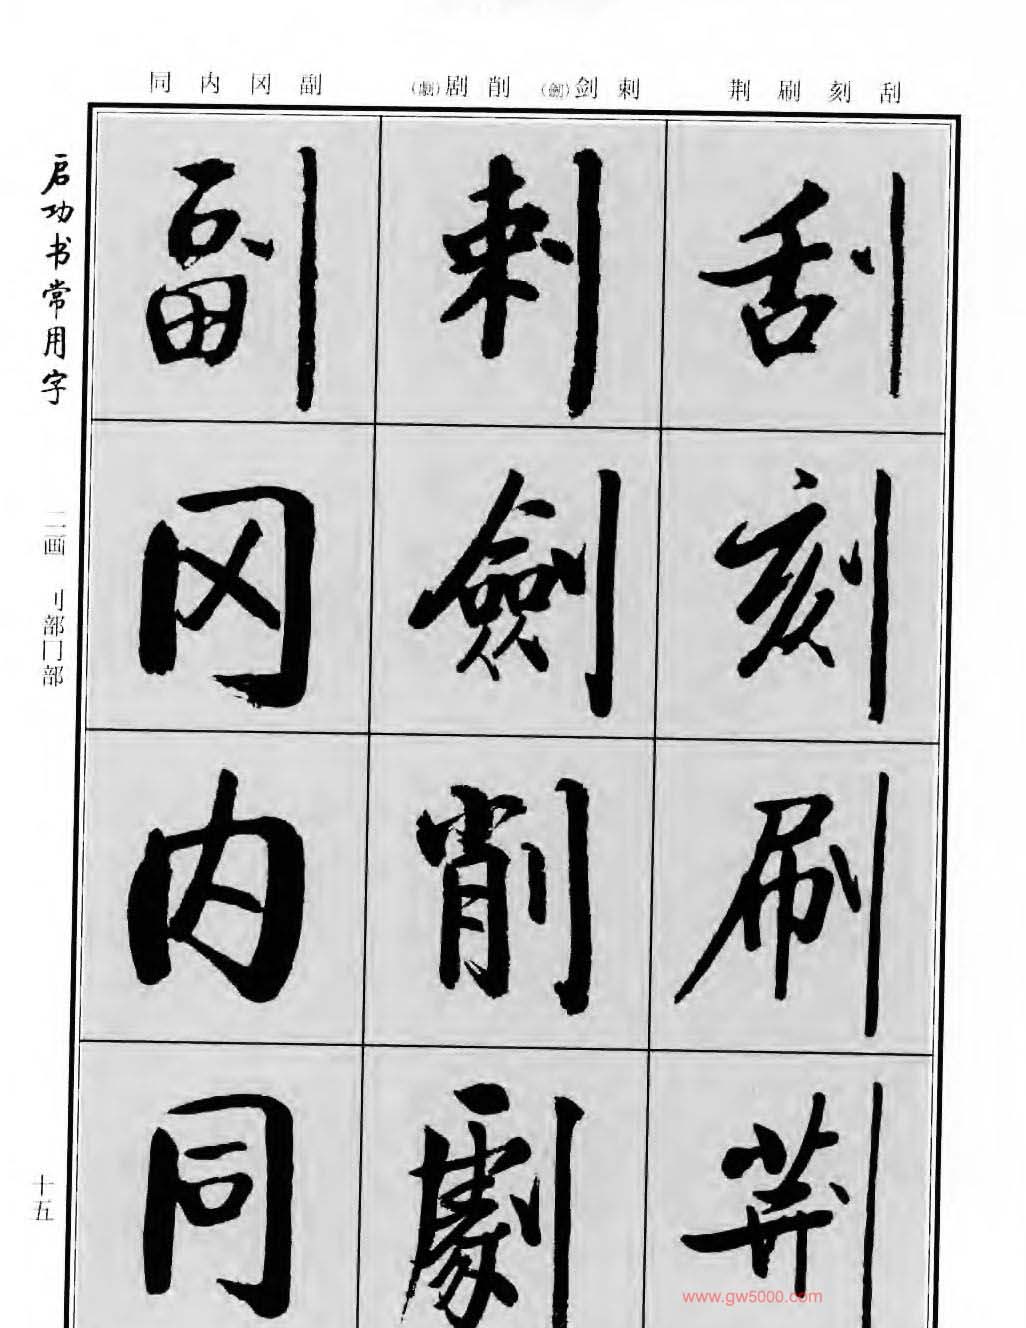 同 内 冈 副
(劇)剧 削 (劍)剑 刺
荆 刷 刻 刮
启功书常用字
二画 刂部冂部
十五
刮
刻
刷
荆
刺
劍
削
劇
副
冈
内
同
www.gw5000.com